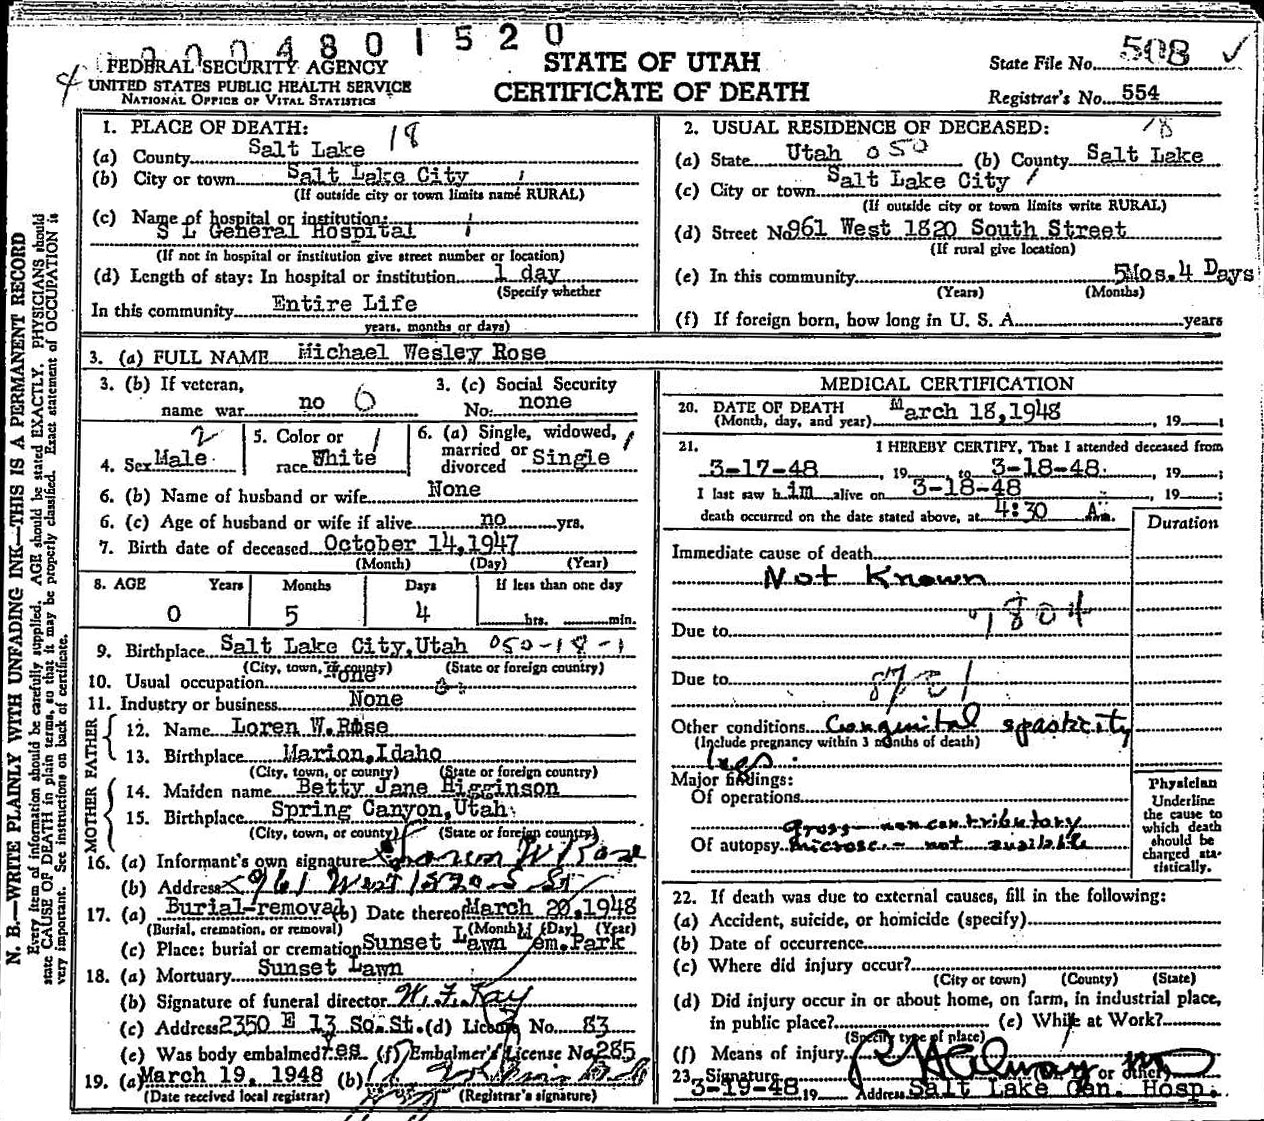 0004801520
FEDERAL SECURITY AGENCY
UNITED STATES PUBLIC HEALTH SERVICE
NATIONAL OFFICE OF VITAL STATISTICS
4
STATE OF UTAH
CERTIFICATE OF DEATH
State File No. 508 ✓
Registrar's No. 554
N. B.—WRITE PLAINLY WITH UNFADING INK—THIS IS A PERMANENT RECORD
Every item of information should be carefully supplied. AGE should be stated EXACTLY. PHYSICIANS should
state CAUSE OF DEATH in plain terms, so that it may be properly classified. Exact statement of OCCUPATION is
very important. See instructions on back of certificate.
1. PLACE OF DEATH:
(a) County Salt Lake 18
(b) City or town Salt Lake City
(If outside city or town limits name RURAL)
(c) Name of hospital or institution:
S L General Hospital
(If not in hospital or institution give street number or location)
(d) Length of stay: In hospital or institution 1 day
(Specify whether
In this community Entire Life
years, months or days)
2. USUAL RESIDENCE OF DECEASED: 18
(a) State Utah 050 (b) County Salt Lake
(c) City or town Salt Lake City
(If outside city or town limits write RURAL)
(d) Street No 961 West 1820 South Street
(If rural give location)
(e) In this community 5Mos.4 Days
(Years) (Months)
(f) If foreign born, how long in U. S. A. years
3. (a) FULL NAME Michael Wesley Rose
3. (b) If veteran,
name war no 0
3. (c) Social Security
No. none
4. Sex Male 2
5. Color or
race White 1
6. (a) Single, widowed,
married or
divorced Single 1
6. (b) Name of husband or wife None
6. (c) Age of husband or wife if alive no yrs.
7. Birth date of deceased October 14,1947
(Month) (Day) (Year)
8. AGE Years Months Days If less than one day
0 5 4 hrs. min.
9. Birthplace Salt Lake City,Utah 050-18-1
(City, town, or county) (State or foreign country)
10. Usual occupation None
11. Industry or business None
FATHER
12. Name Loren W.Rose
13. Birthplace Marion,Idaho
(City, town, or county) (State or foreign country)
MOTHER
14. Maiden name Betty Jane Higginson
15. Birthplace Spring Canyon,Utah
(City, town, or county) (State or foreign country)
16. (a) Informant's own signature Loren W Rose
(b) Address 961 West 1820 S St
17. (a) Burial-removal (b) Date thereof March 20,1948
(Burial, cremation, or removal) (Month) (Day) (Year)
(c) Place: burial or cremation Sunset Lawn Mem.Park
18. (a) Mortuary Sunset Lawn
(b) Signature of funeral director W. F. Kay
(c) Address 2350 E 13 So.St. (d) License No. 83
(e) Was body embalmed? Yes (f) Embalmer's License No. 285
19. (a) March 19, 1948 (b)
(Date received local registrar) (Registrar's signature)
MEDICAL CERTIFICATION
20. DATE OF DEATH March 18,1948
(Month, day, and year) , 19
21. I HEREBY CERTIFY, That I attended deceased from
3-17-48 , 19 to 3-18-48 , 19 ;
I last saw him alive on 3-18-48 , 19 ;
death occurred on the date stated above, at 4:30 A m.
Duration
Immediate cause of death
Not Known
Due to 7804
Due to
Other conditions Congenital spasticity
(Include pregnancy within 3 months of death)
legs.
Major findings:
Of operations
gross—noncontributory
Of autopsy microsc.—not available
Physician
Underline
the cause to
which death
should be
charged sta-
tistically.
22. If death was due to external causes, fill in the following:
(a) Accident, suicide, or homicide (specify)
(b) Date of occurrence
(c) Where did injury occur?
(City or town) (County) (State)
(d) Did injury occur in or about home, on farm, in industrial place,
in public place? (e) While at Work?
(Specify type of place)
(f) Means of injury
23. Signature M.D. or other
3-19-48 19 Address Salt Lake Gen. Hosp.